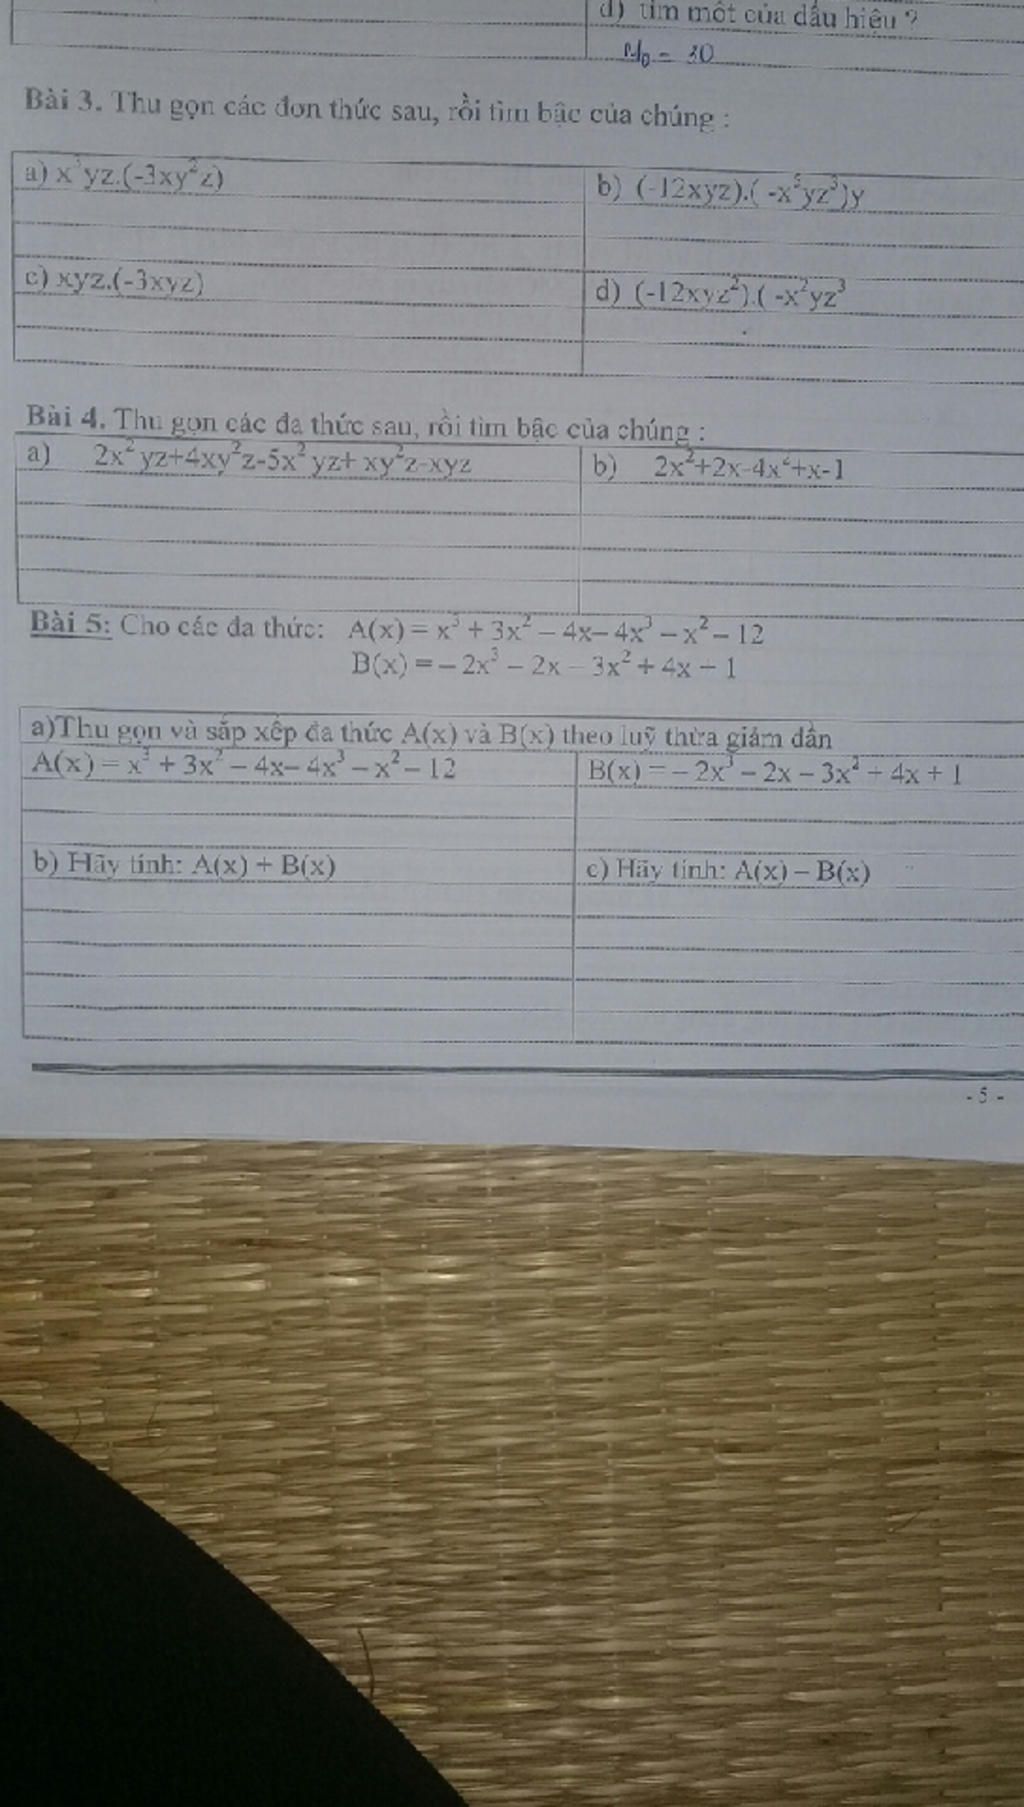 d) tìm mốt của dấu hiệu ?
M₀ = 30
Bài 3. Thu gọn các đơn thức sau, rồi tìm bậc của chúng :
a) x³yz.(-3xy²z)
b) (-12xyz).( -x⁵yz³)y
c) xyz.(-3xyz)
d) (-12xyz²).( -x²yz³
Bài 4. Thu gọn các đa thức sau, rồi tìm bậc của chúng :
a) 2x² yz+4xy²z-5x² yz+ xy²z-xyz
b) 2x²+2x-4x²+x-1
Bài 5: Cho các đa thức: A(x) = x³ + 3x² – 4x– 4x³ – x² – 12
B(x) = – 2x³ – 2x – 3x² + 4x – 1
a)Thu gọn và sắp xếp đa thức A(x) và B(x) theo luỹ thừa giảm dần
A(x) = x³ + 3x² – 4x– 4x³ – x² – 12
B(x) = – 2x³ – 2x – 3x² + 4x + 1
b) Hãy tính: A(x) + B(x)
c) Hãy tính: A(x) – B(x)
- 5 -